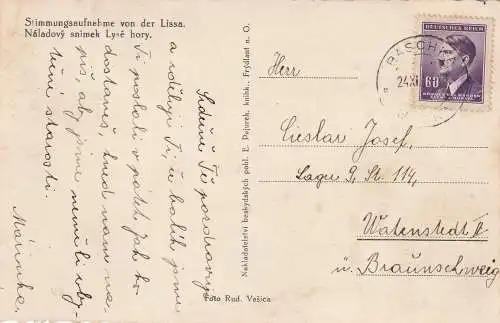 Stimmungsaufnahme von der Lissa.
Náladový snímek Lysé hory.
Srdečně Tě pozdravuji
a sděluji Ti, že balík jsme
Ti poslali v pátek. Jak ho
dostaneš, hned nám na-
piš, aby jsme neměli zby-
tečné starosti.
Mařinka.
Nakladatelství beskydských pohl. E. Pajurek, knihk., Frýdlant n. O.
Foto Rud. Vešica
DEUTSCHES REICH
60
BÖHMEN UND MÄHREN
ČECHY A MORAVA
RASCH
24.XI
Herr
Cieslar Josef,
Lager 9, St. 114,
Watenstedt
ü. Braunschweig